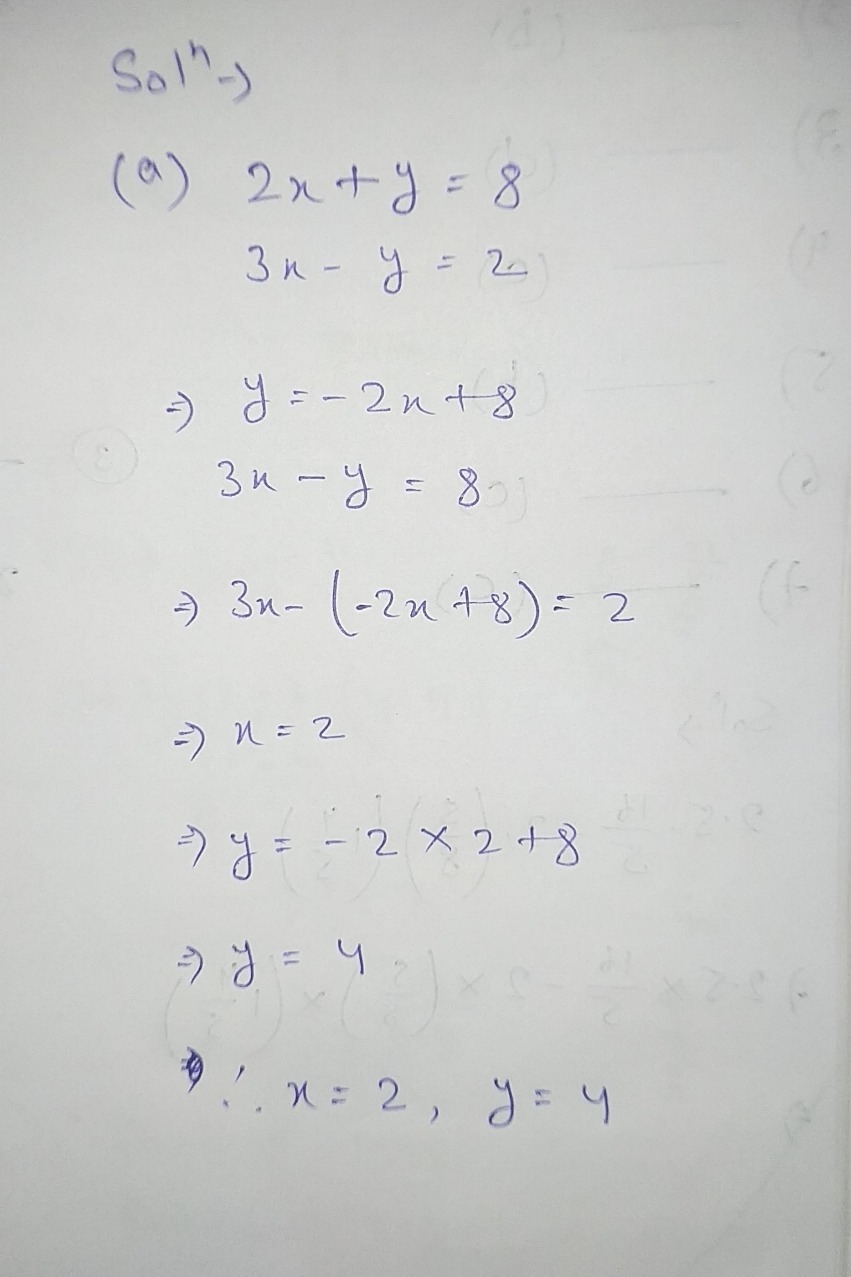 Solⁿ→
(a) 2x + y = 8
3x - y = 2
⇒ y = - 2x + 8
3x - y = 8
⇒ 3x - (-2x + 8) = 2
⇒ x = 2
⇒ y = - 2 × 2 + 8
⇒ y = 4
∴ x = 2, y = 4